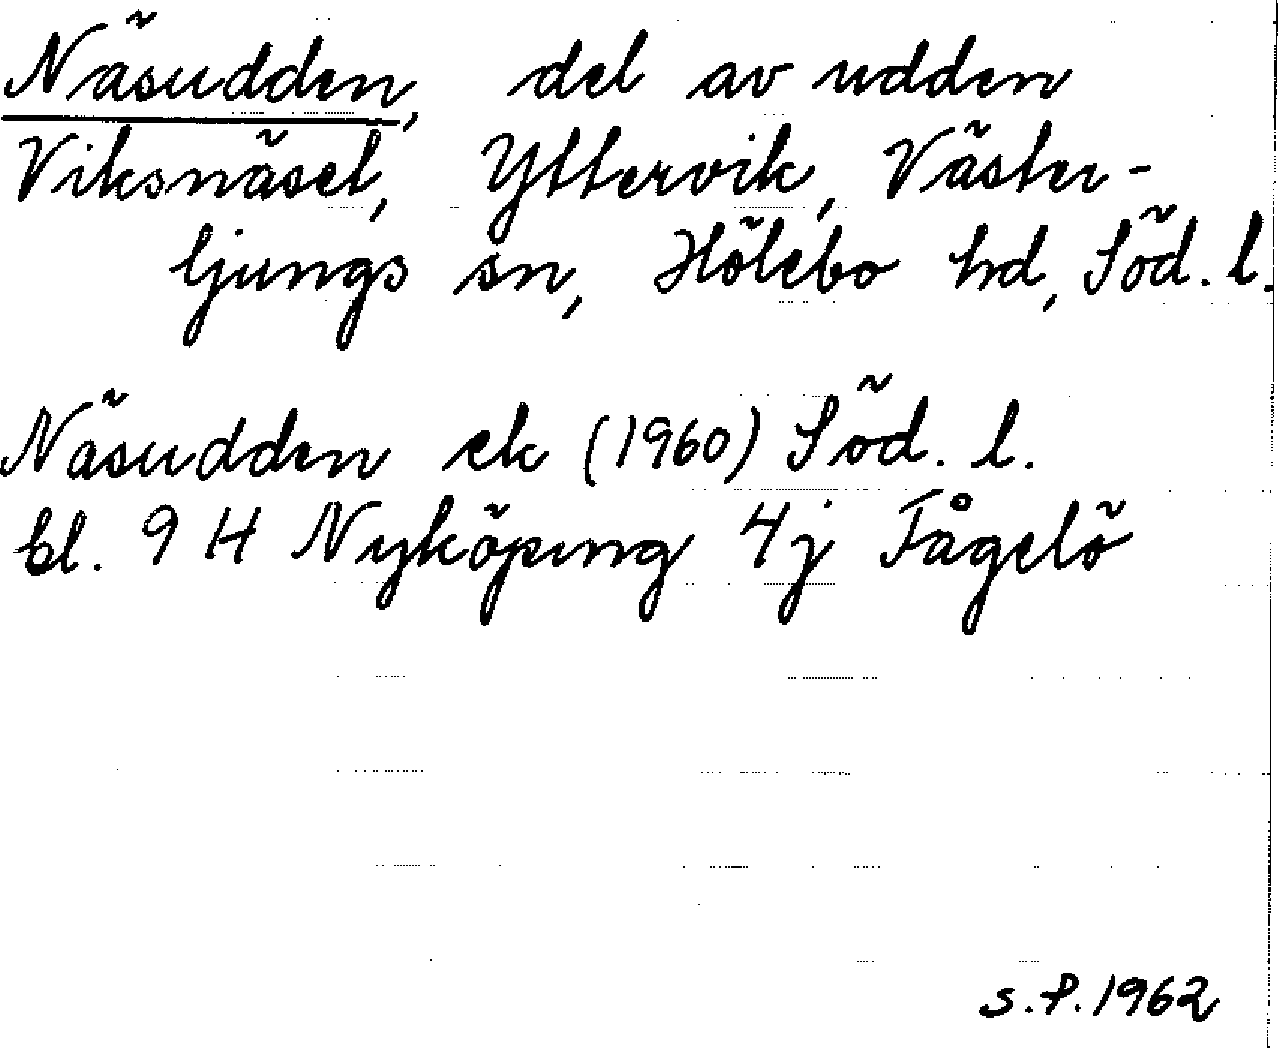 Näsudden, del av udden
Viksnäset, Yttervik, Väster-
ljungs sn, Hölebo hd, Söd. l.
Näsudden ek (1960) Söd. l.
bl. 9 H Nyköping 4j Fågelö
S.P. 1962